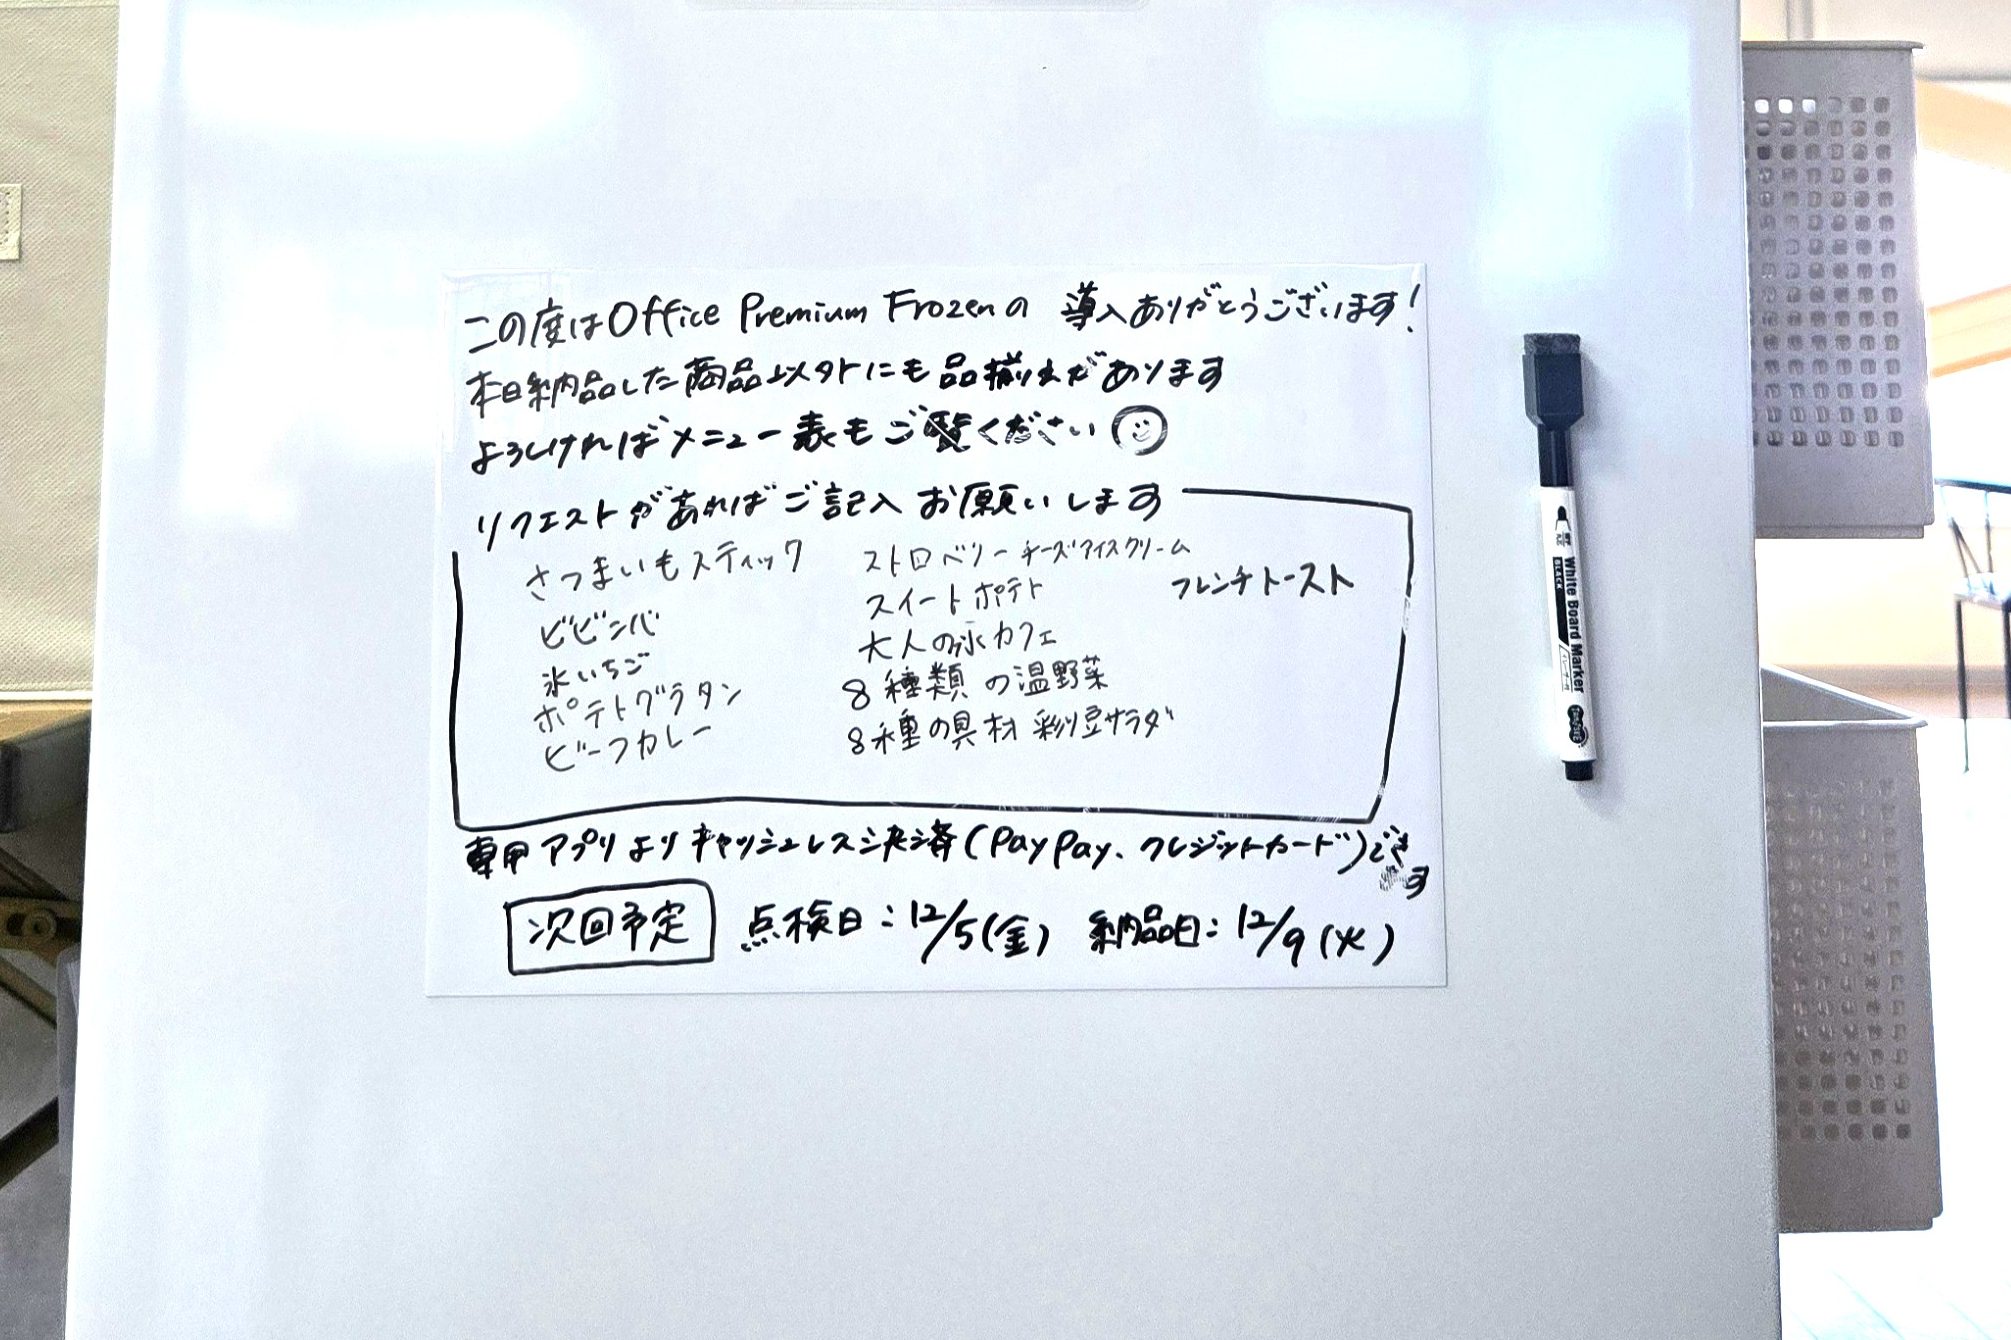 この度はOffice Premium Frozenの 導入ありがとうございます!
本日納品した商品以外にも品揃えがあります
よろしければメニュー表もご覧ください
リクエストがあればご記入お願いします
さつまいもスティック
ビビンバ
氷いちご
ポテトグラタン
ビーフカレー
ストロベリーチーズアイスクリーム
スイートポテト
大人の氷カフェ
8種類の温野菜
8種の具材 彩り豆サラダ
フレンチトースト
専用アプリよりキャッシュレス決済(PayPay、クレジットカード)できます
次回予定 点検日:12/5(金) 納品日:12/9(火)
White Board Marker
BLACK